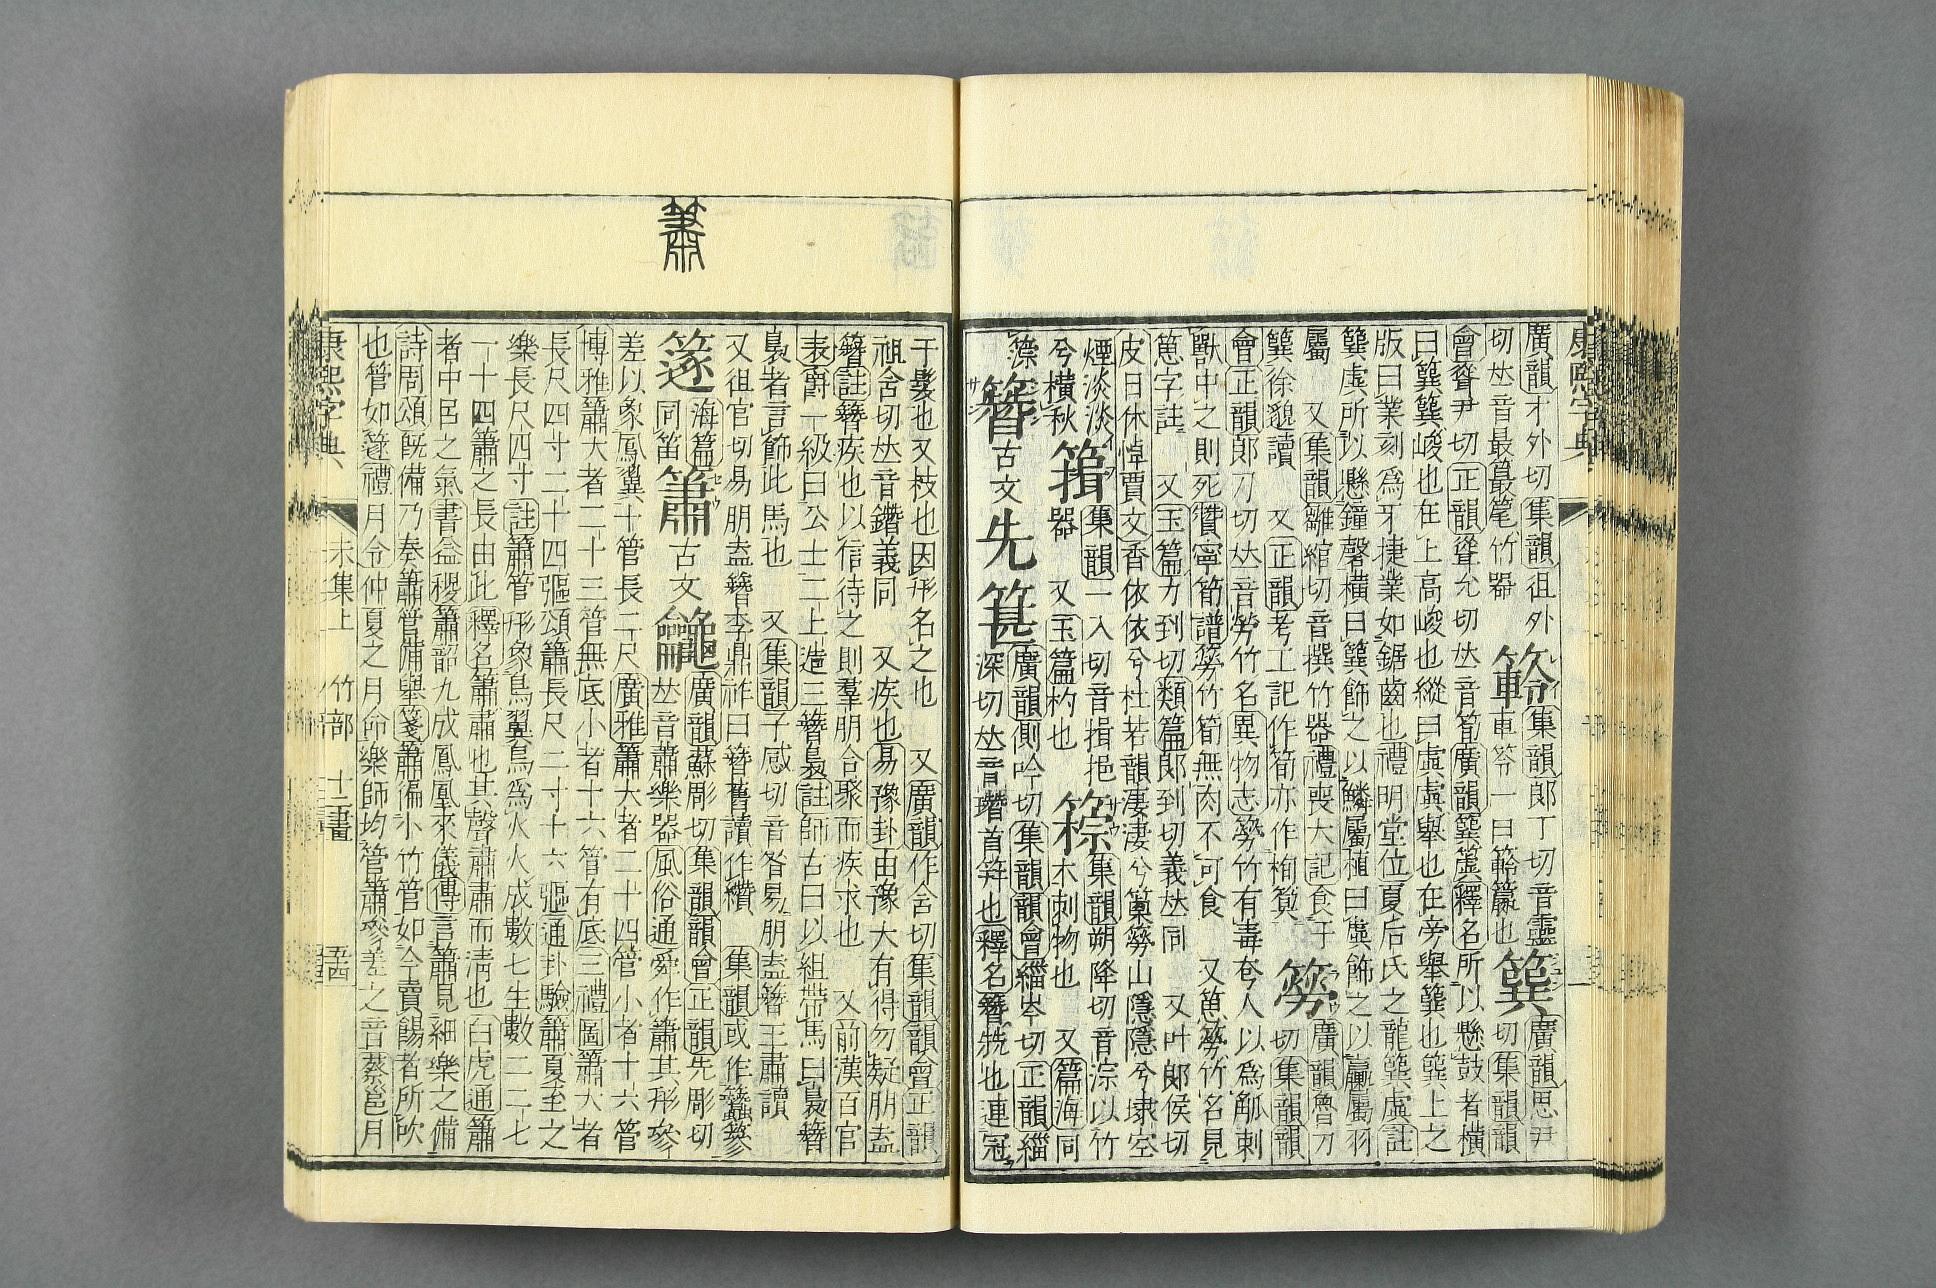 康熙字典
廣韻才外切集韻徂外
切𠀤音最 竹器
集韻郎丁切音靈
車笭一曰 也
簨
廣韻思尹
切集韻韻
會聳尹切正韻聳允切𠀤音筍廣韻簨簴釋名所以懸鼓者橫
曰簨簨峻也在上高峻也縱曰虡虡舉也在旁舉簨也簨上之
版曰業刻爲牙捷業如鋸齒也禮明堂位夏后氏之龍簨虡註
簨虡所以懸鐘磬橫曰簨飾之以鱗屬植曰虡飾之以臝屬羽
屬 又集韻雛綰切音撰竹器禮喪大記食于
簨徐邈讀 又正韻考工記作筍亦作栒簨
簩
廣韻魯刀
切集韻韻
會正韻郎刀切𠀤音勞竹名異物志簩竹有毒夷人以爲觚刺
獸中之則死贊寧筍譜簩竹筍無肉不可食 又 簩竹名見
字註 又玉篇力到切類篇郎到切義𠀤同 又叶郎侯切
皮日休悼賈文香依依兮杜若韻淒淒兮菎簩山隱隱兮埭空
煙淡淡
兮橫秋
集韻一入切音揖挹
器 又玉篇杓也
集韻朔降切音淙以竹
木刺物也 又篇海同
簪古文先
廣韻側吟切集韻韻會緇岑切正韻緇
深切𠀤音 首笄也釋名簪兓也連冠
簫
于髮也又枝也因形名之也 又廣韻作含切集韻韻會正韻
祖含切𠀤音鐕義同 又疾也易豫卦由豫大有得勿疑朋盍
簪註簪疾也以信待之則羣朋合聚而疾來也 又前漢百官
表爵一級曰公士二上造三簪裊註師古曰以組帶馬曰裊簪
裊者言飾此馬也 又集韻子感切音昝易朋盍簪王肅讀
又徂官切易朋盍簪李鼎祚曰簪舊讀作欑 集韻或作 篸
篴
海篇
同笛
簫古文
廣韻蘇彫切集韻韻會正韻先彫切
𠀤音蕭樂器風俗通舜作簫其形參
差以象鳳翼十管長二尺廣雅簫大者二十四管小者十六管
博雅簫大者二十三管無底小者十六管有底三禮圖簫大者
長尺四寸二十四彄頌簫長尺二寸十六彄通卦驗簫夏至之
樂長尺四寸註簫管形象鳥翼鳥爲火火成數七生數二二七
一十四簫之長由此釋名簫肅也其聲肅肅而淸也白虎通簫
者中呂之氣書益稷簫韶九成鳳凰來儀傳言簫見細樂之備
詩周頌旣備乃奏簫管備舉箋簫編小竹管如今賣餳者所吹
也管如篴禮月令仲夏之月命樂師均管簫參差之音蔡邕月
康熙字典 未集上 竹部 十二畫 五四